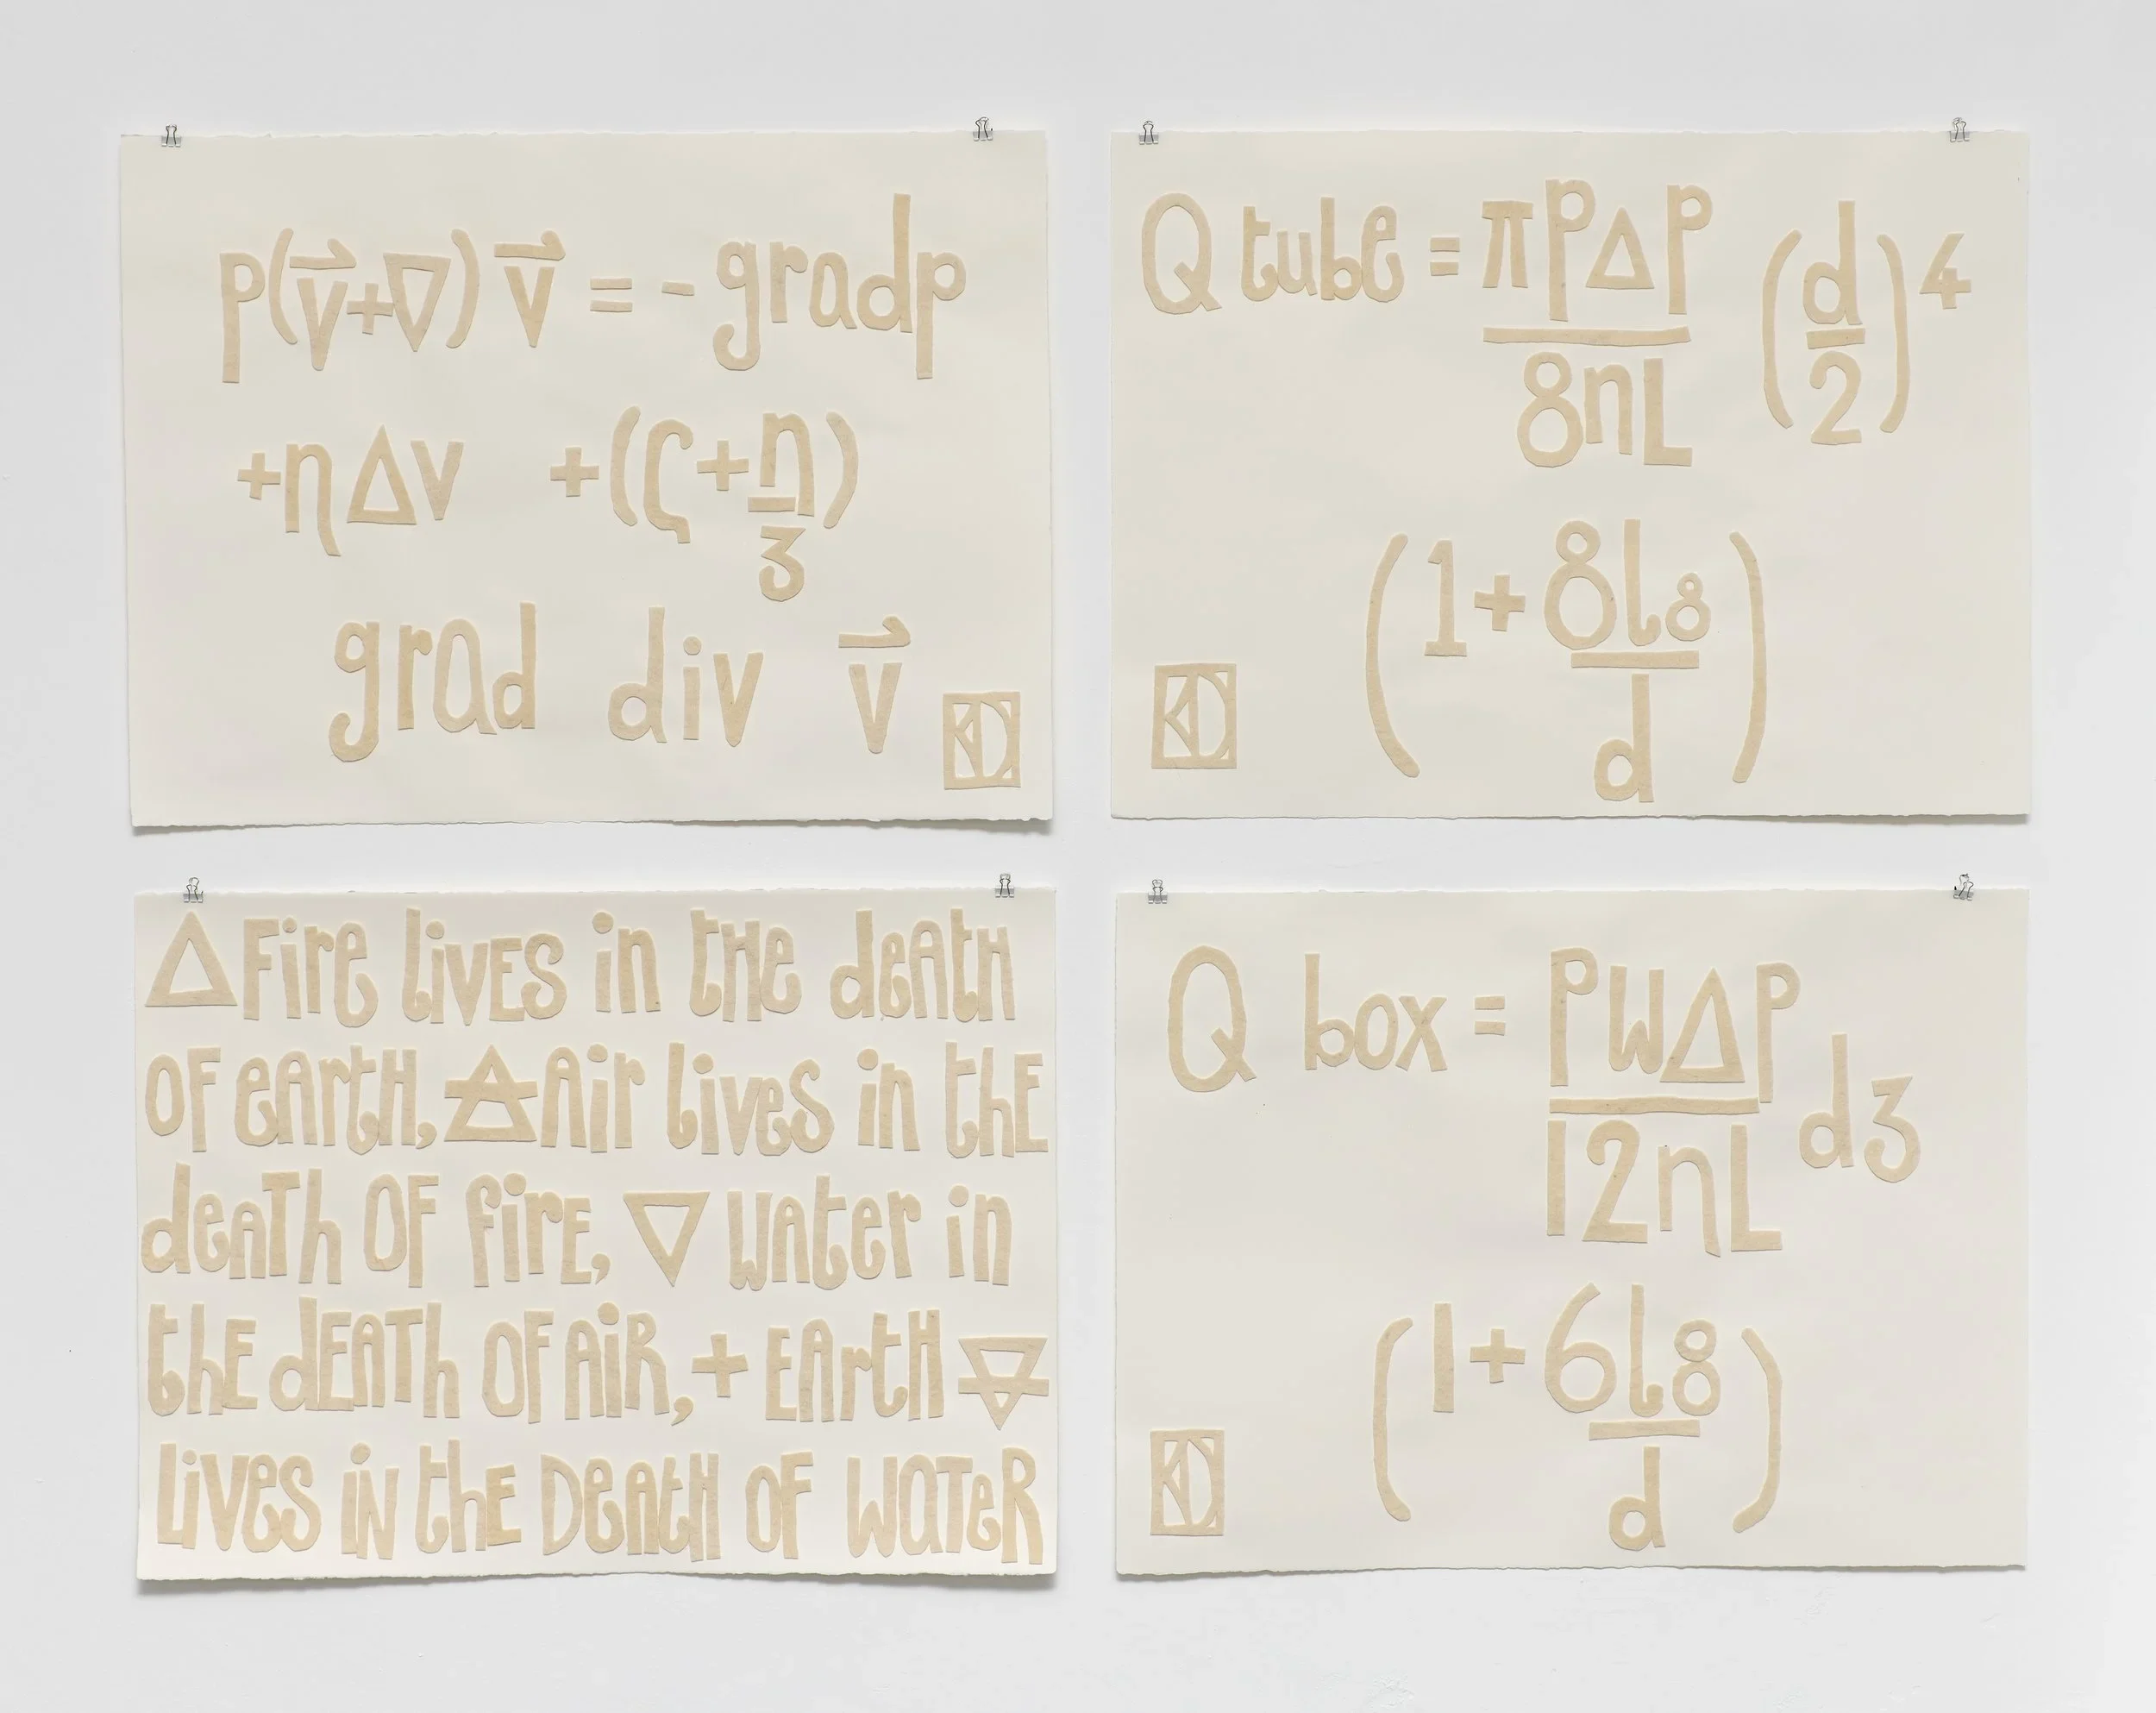 p(v⃗+∇) v⃗ = - gradp
+η∆v +(ζ+η/3)
grad div v⃗
KD
Q tube = πP∆P/8ηL (d/2)⁴
(1+8l8/d)
KD
∆ Fire livES in tHe deAtH
OF eArtH, 🜁 Air lives in thE
deATh OF firE, ∇ WAter in
thE dEATh OF AiR, + EArtH 🜃
Lives iN thE DeAtH OF WATeR
Q box = PW∆P/12ηL d3
(1+6l8/d)
KD